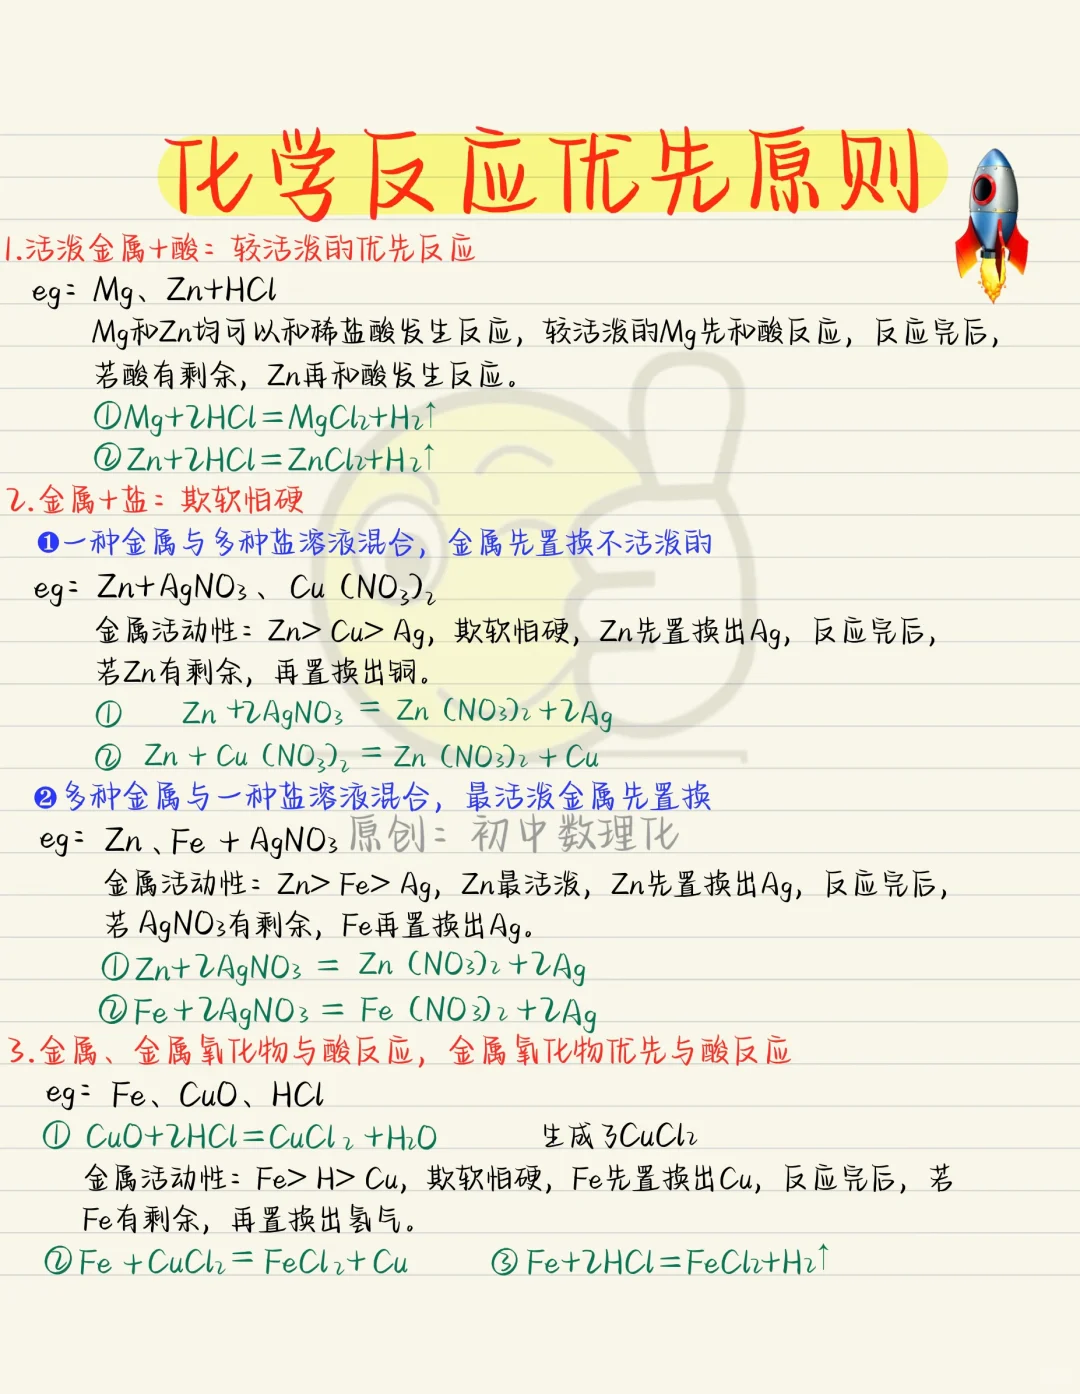 化学反应优先原则
1.活泼金属+酸：较活泼的优先反应
eg：Mg、Zn+HCl
Mg和Zn均可以和稀盐酸发生反应，较活泼的Mg先和酸反应，反应完后，
若酸有剩余，Zn再和酸发生反应。
①Mg+2HCl=MgCl₂+H₂↑
②Zn+2HCl=ZnCl₂+H₂↑
2.金属+盐：欺软怕硬
❶一种金属与多种盐溶液混合，金属先置换不活泼的
eg：Zn+AgNO₃、Cu（NO₃)₂
金属活动性：Zn>Cu>Ag，欺软怕硬，Zn先置换出Ag，反应完后，
若Zn有剩余，再置换出铜。
① Zn+2AgNO₃ = Zn（NO₃)₂+2Ag
② Zn+Cu（NO₃)₂ = Zn（NO₃)₂+Cu
❷多种金属与一种盐溶液混合，最活泼金属先置换
eg：Zn、Fe + AgNO₃
原创：初中数理化
金属活动性：Zn>Fe>Ag，Zn最活泼，Zn先置换出Ag，反应完后，
若AgNO₃有剩余，Fe再置换出Ag。
①Zn+2AgNO₃ = Zn（NO₃)₂+2Ag
②Fe+2AgNO₃ = Fe（NO₃)₂+2Ag
3.金属、金属氧化物与酸反应，金属氧化物优先与酸反应
eg：Fe、CuO、HCl
① CuO+2HCl=CuCl₂+H₂O 生成了CuCl₂
金属活动性：Fe>H>Cu，欺软怕硬，Fe先置换出Cu，反应完后，若
Fe有剩余，再置换出氢气。
②Fe+CuCl₂=FeCl₂+Cu ③Fe+2HCl=FeCl₂+H₂↑